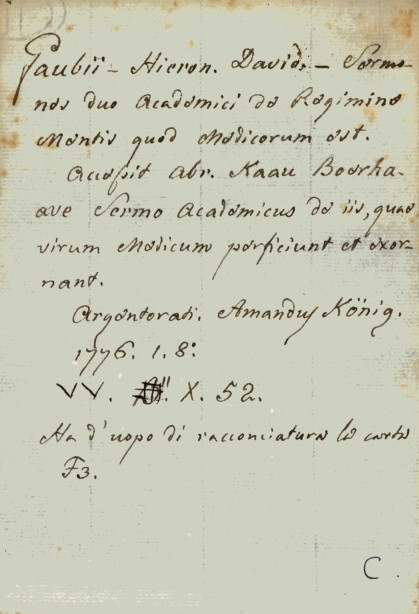 Gaubii - Hieron. David. - Sermo-
nes duo Academici de Regimine
Mentis quod Medicorum est.
Accessit Abr. Kaau Boerha-
ave Sermo Academicus de iis, quae
virum Medicum perficiunt et exor-
nant.
Argentorati. Amandus König.
1776. 1. 8:
VV. X. 52.
Ha d'uopo di racconciatura le carte
F3.
C